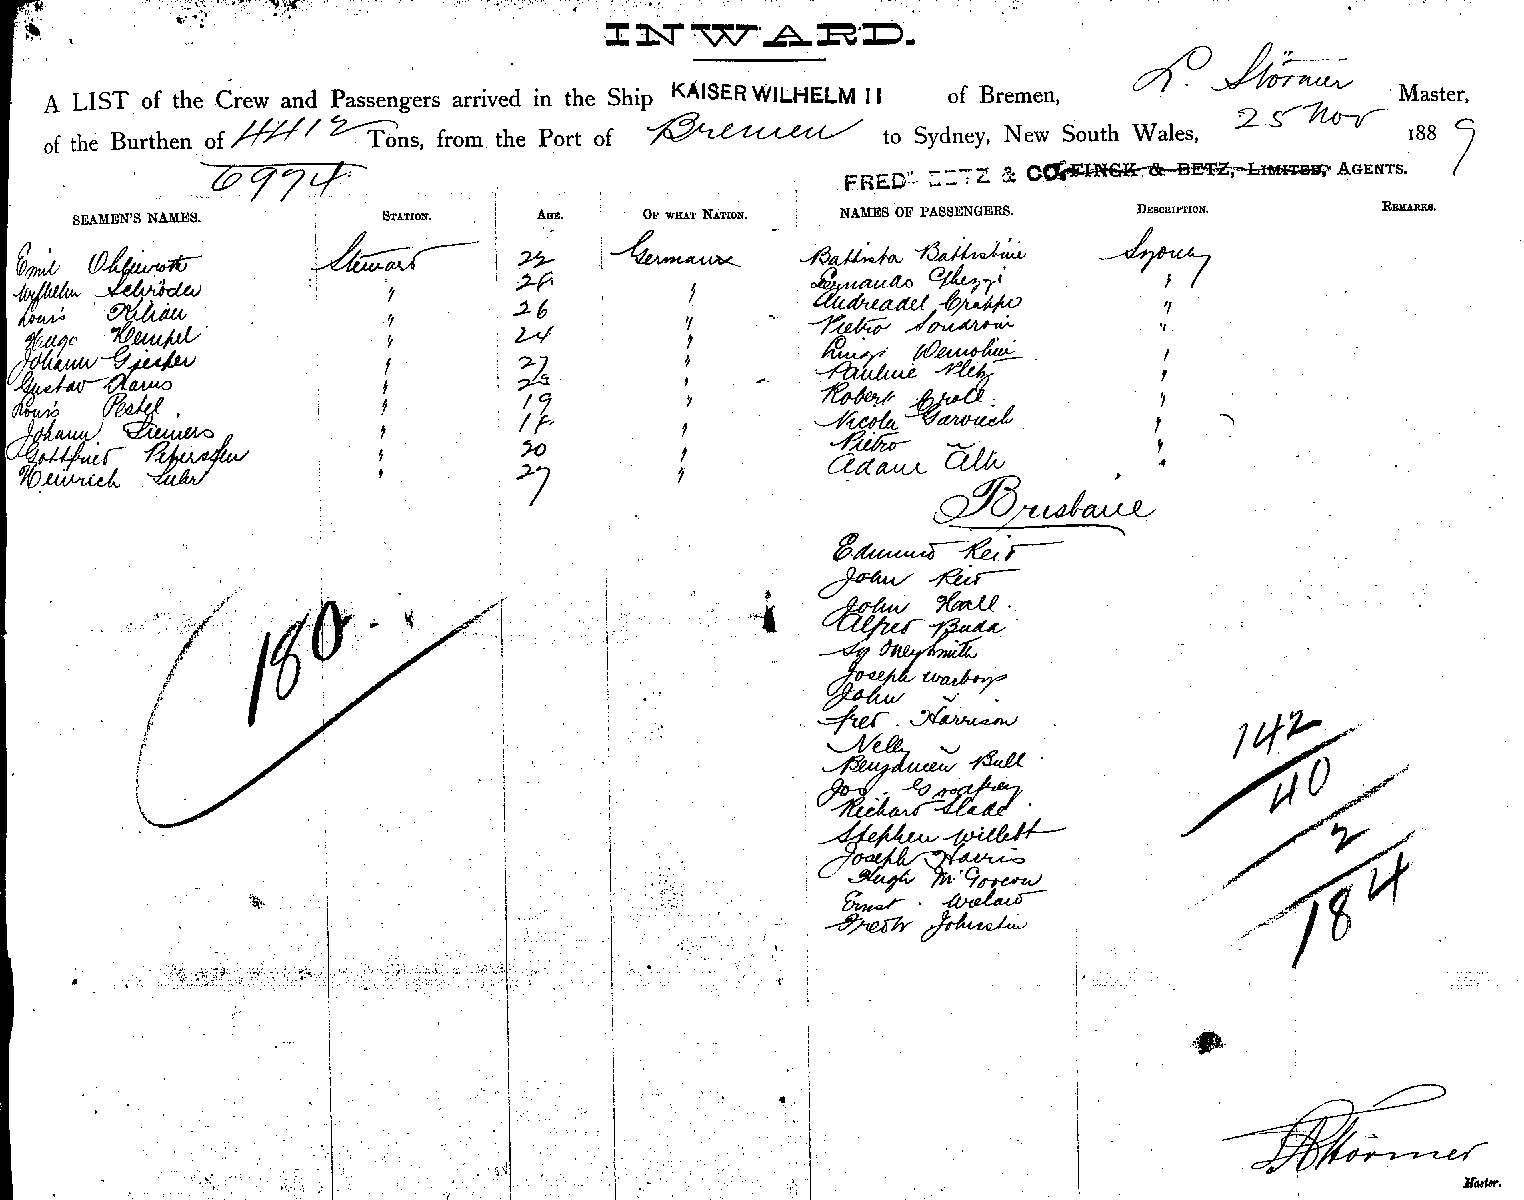 INWARD.
A LIST of the Crew and Passengers arrived in the Ship KAISER WILHELM II of Bremen, L. Störmer Master,
of the Burthen of 4412 Tons, from the Port of Bremen to Sydney, New South Wales, 25 Nov 1889
6974
FRED BETZ & CO. FINCK & BETZ, LIMITED, AGENTS.
SEAMEN'S NAMES. STATION. AGE. OF WHAT NATION. NAMES OF PASSENGERS. DESCRIPTION. REMARKS.
Emil Steward 22 Germany Battista Battistini Sydney
Wilhelm Schröder " " Ghezzi "
Louis Kilian " 26 " "
Hugo Hempel " 24 " Pietro "
Johann " 27 " Luigi "
Gustav Harms " " Pauline "
Louis Pestel " 19 " Robert Croll "
Johann Siemers " 18 " Nicola "
Gottfried Petersen " 20 " Pietro "
Heinrich Luhr " 27 " "
Brisbane
Edmund Reid
John Reid
John Hall
Alfred Buda
Joseph Warboys
John "
Fred. Harrison
Nelly "
Benjamin Bull
Jos. Godfrey
Richard Slade
Stephen Willett
Joseph Harris
Hugh McGovern
Ernst
Fredk Johnston
180
142
40
2
184
Störmer
Master.